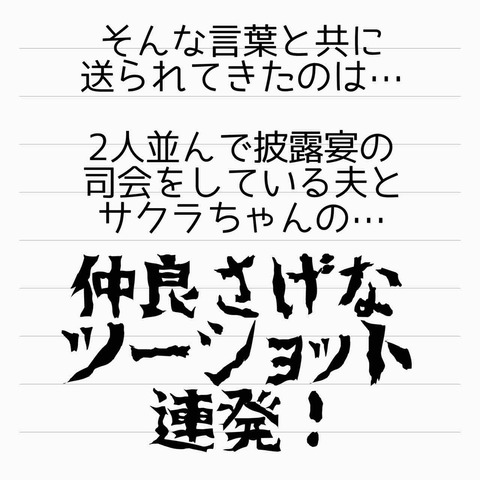 そんな言葉と共に
送られてきたのは…
2人並んで披露宴の
司会をしている夫と
サクラちゃんの…
仲良さげな
ツーショット
連発！